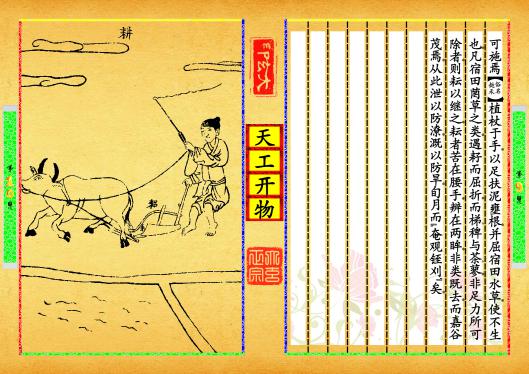 可施焉【俗名撻禾】植杖于手以足扶泥壅根并屈宿田水草使不生
也凡宿田茵草之类遇耔而屈折而梯稗与荼蓼非足力所可
除者则耘以继之耘者苦在腰手辨在两眸非类既去而嘉谷
茂焉从此泄以防潦溉以防旱旬月而"奄观铚刈"矣
天工开物
耕